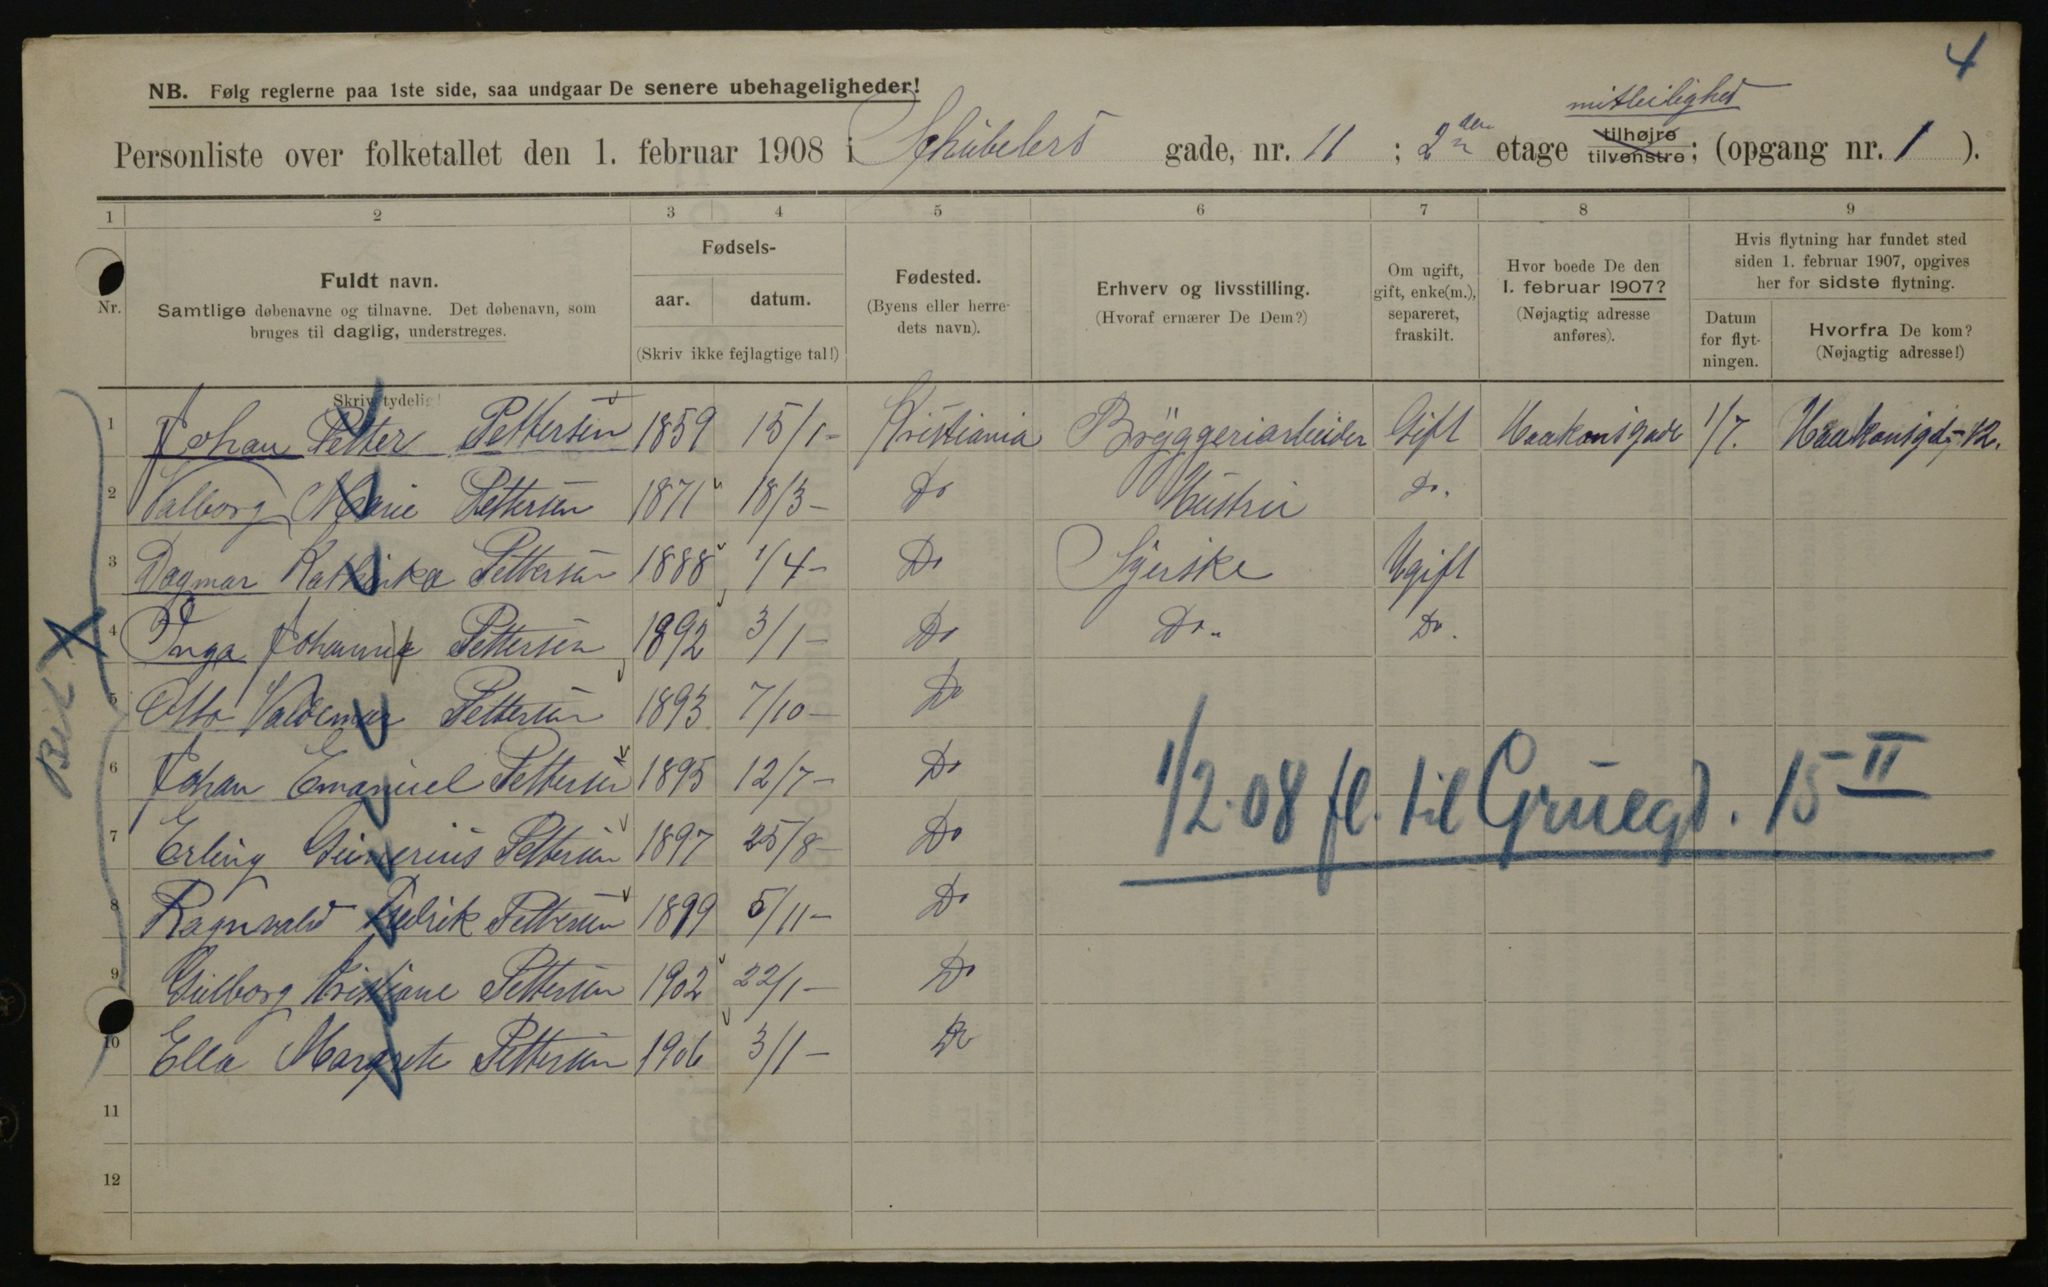 4
NB. Følg reglerne paa 1ste side, saa undgaar De senere ubehageligheder!
mitleilighed
Personliste over folketallet den 1. februar 1908 i Schübelers gade, nr. 11 ; 2den etage tilhøjre tilvenstre; (opgang nr. 1 ).
1 2 3 4 5 6 7 8 9
Nr.
Fuldt navn.
Samtlige døbenavne og tilnavne. Det døbenavn, som
bruges til daglig, understreges.
Fødsels-
aar. datum.
(Skriv ikke fejlagtige tal!)
Fødested.
(Byens eller herre-
dets navn).
Erhverv og livsstilling.
(Hvoraf ernærer De Dem?)
Om ugift,
gift, enke(m.),
separeret,
fraskilt.
Hvor boede De den
1. februar 1907?
(Nøjagtig adresse
anføres).
Hvis flytning har fundet sted
siden 1. februar 1907, opgives
her for sidste flytning.
Datum
for flyt-
ningen.
Hvorfra De kom?
(Nøjagtig adresse!)
Skriv tydelig!
1 Johan Petter Pettersen 1859 15/1- Kristiania Bryggeriarbeider Gift Haakonsgade 1/7. Haakonsgd, 12.
2 Valborg Marie Pettersen 1871 18/3- Do Hustru Do.
3 Dagmar Kathinka Pettersen 1888 1/4- Do Syerske Ugift
4 Inga Johanne Pettersen 1892 3/1- Do Do. Do.
5 Otto Valdemar Pettersen 1893 7/10- Do
6 Johan Emanuel Pettersen 1895 12/7- Do
7 Erling Gunerius Pettersen 1897 25/8- Do
8 Ragnvald Fredrik Pettersen 1899 5/11- Do
9 Gulborg Kristiane Pettersen 1902 22/1- Do
10 Ella Margrete Pettersen 1906 3/1- Do
11
12
1/2-08 fl. til Gruegd. 15 II